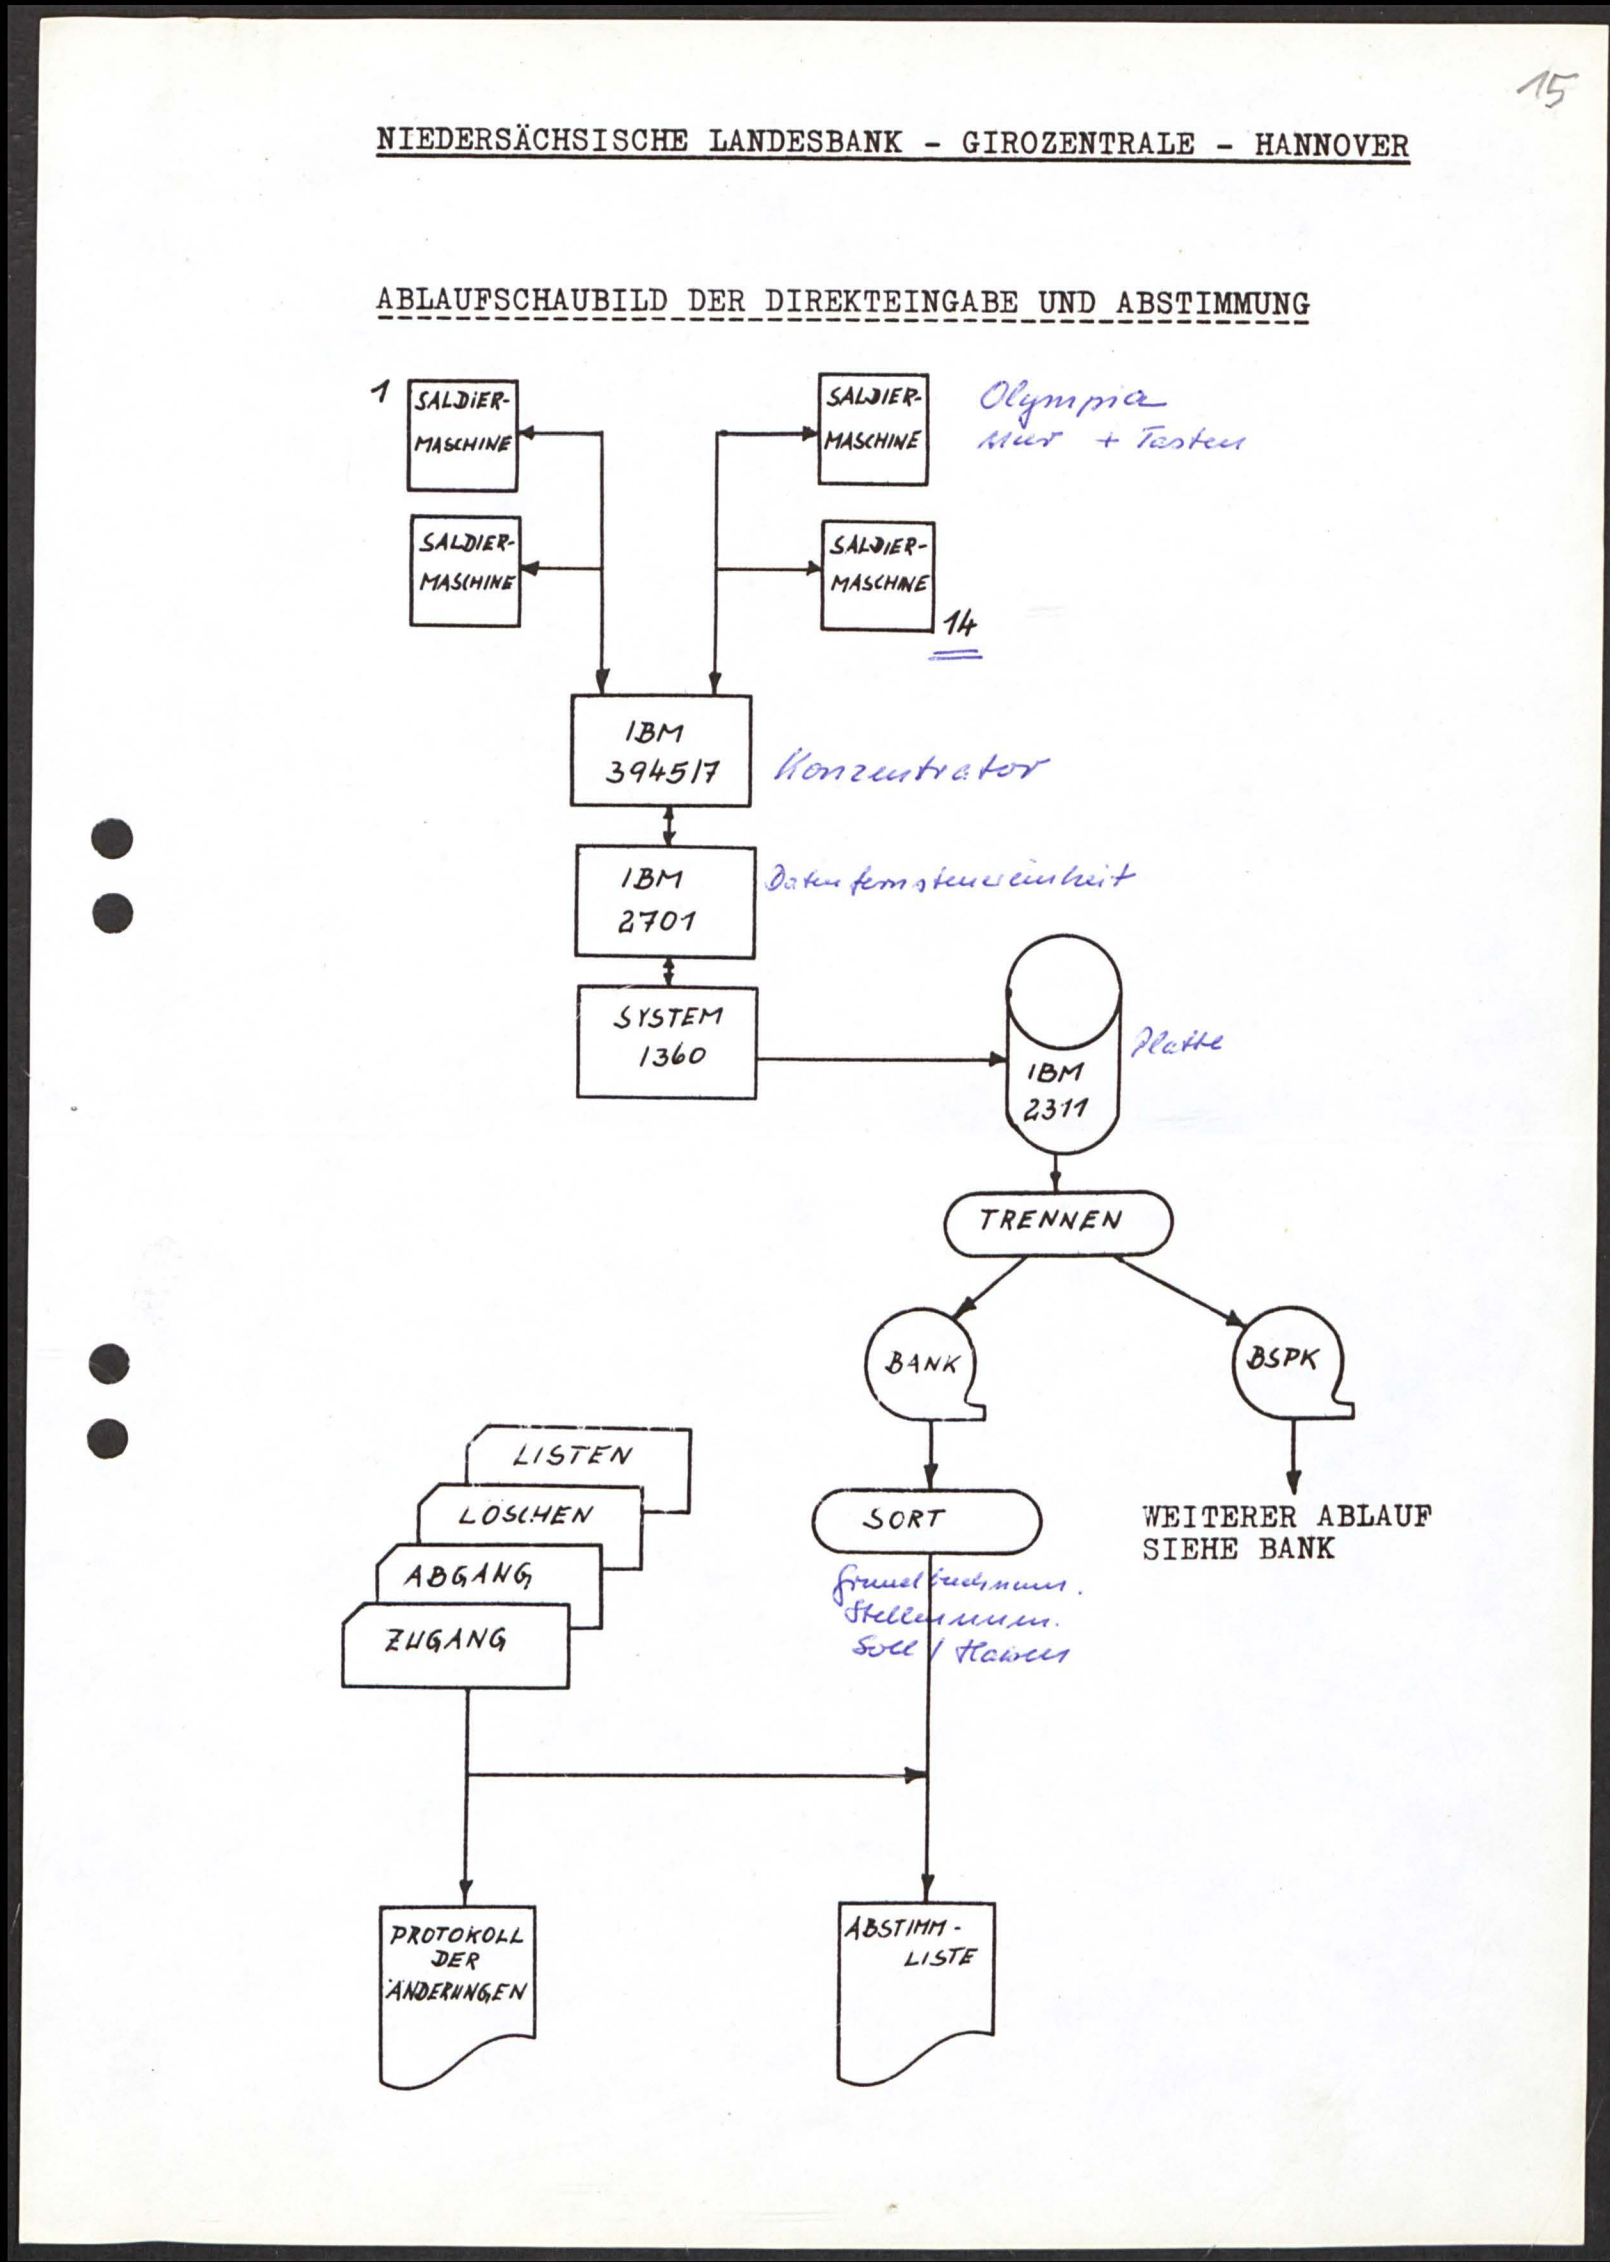 15
NIEDERSÄCHSISCHE LANDESBANK - GIROZENTRALE - HANNOVER
ABLAUFSCHAUBILD DER DIREKTEINGABE UND ABSTIMMUNG
1
SALDIER-
MASCHINE
SALDIER-
MASCHINE
Olympia
nur + Tasten
SALDIER-
MASCHINE
SALDIER-
MASCHINE
14
IBM
3945/7
Konzentrator
IBM
2701
Datenfernsteuereinheit
SYSTEM
1360
IBM
2311
Platte
TRENNEN
BANK
BSPK
LISTEN
LÖSCHEN
ABGANG
ZUGANG
SORT
WEITERER ABLAUF
SIEHE BANK
Grundbuchnum.
Stellennum.
Soll / Haben
PROTOKOLL
DER
ÄNDERUNGEN
ABSTIMM-
LISTE